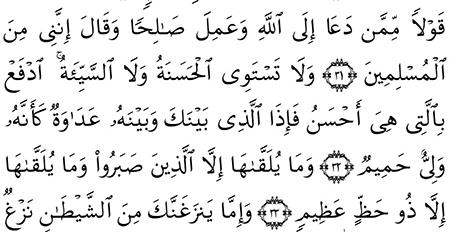 قَوْلًا مِّمَّن دَعَا إِلَى ٱللَّهِ وَعَمِلَ صَٰلِحًا وَقَالَ إِنَّنِى مِنَ
ٱلْمُسْلِمِينَ ٣١ وَلَا تَسْتَوِى ٱلْحَسَنَةُ وَلَا ٱلسَّيِّئَةُ ۚ ٱدْفَعْ
بِٱلَّتِى هِىَ أَحْسَنُ فَإِذَا ٱلَّذِى بَيْنَكَ وَبَيْنَهُۥ عَدَٰوَةٌ كَأَنَّهُۥ
وَلِىٌّ حَمِيمٌ ٣٢ وَمَا يُلَقَّىٰهَا إِلَّا ٱلَّذِينَ صَبَرُواْ وَمَا يُلَقَّىٰهَا
إِلَّا ذُو حَظٍّ عَظِيمٍ ٣٣ وَإِمَّا يَنزَغَنَّكَ مِنَ ٱلشَّيْطَٰنِ نَزْغٌ